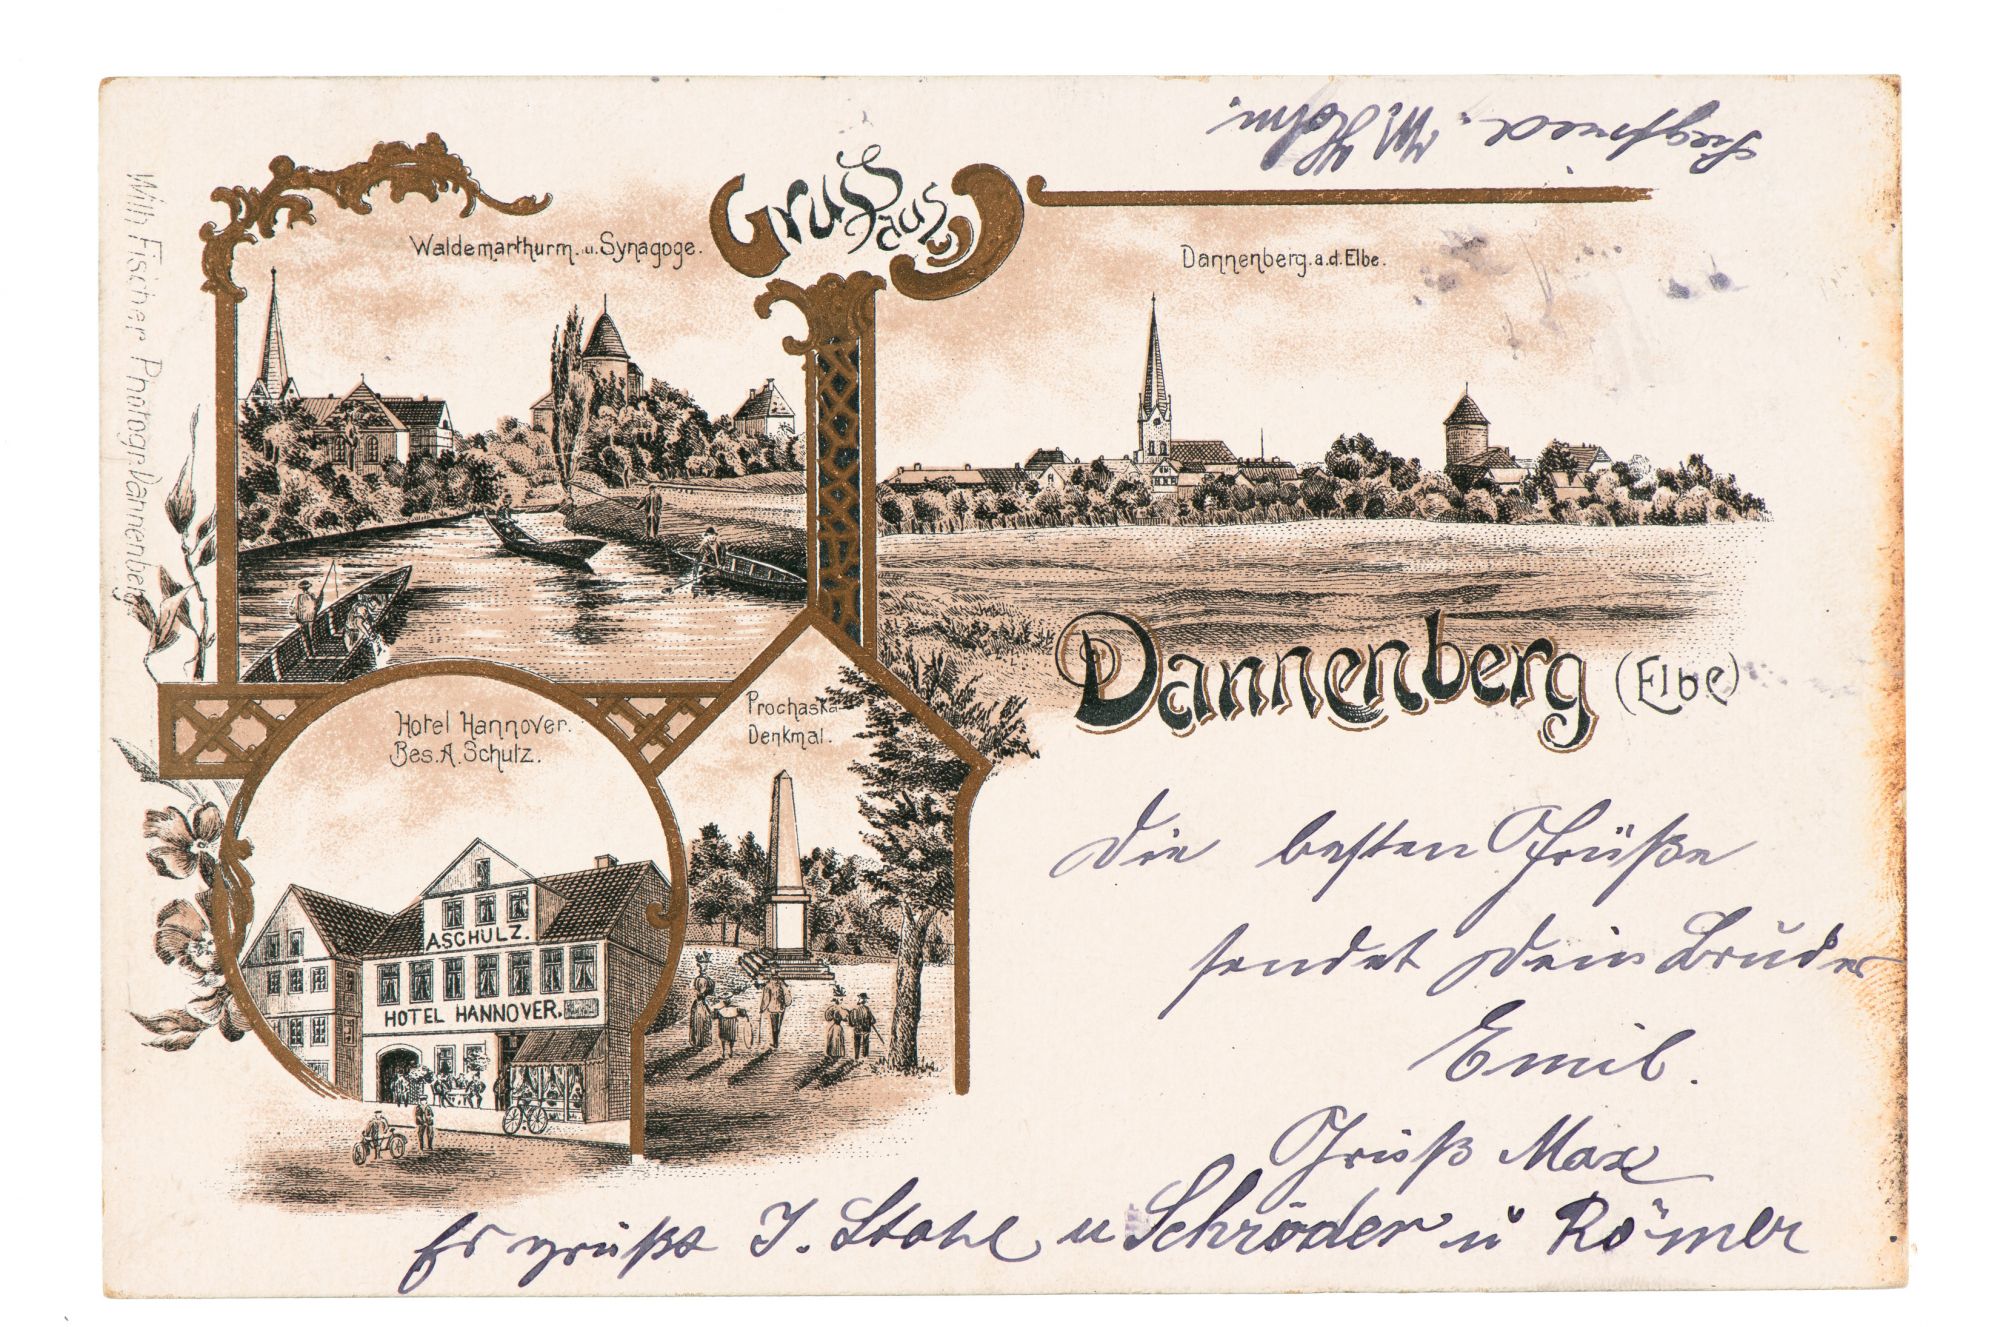 Gruß aus
Waldemarthurm. u. Synagoge.
Dannenberg. a. d. Elbe.
Dannenberg (Elbe)
Hotel Hannover.
Bes. A. Schulz.
Prochaska
Denkmal.
A SCHULZ.
HOTEL HANNOVER.
Wilh Fischer Photogr. Dannenberg
Die besten Grüße
sendet Dein Bruder
Emil.
Gruß Max
Es grüßt J. Stahl u Schröder u Römer
Siegfried. W.